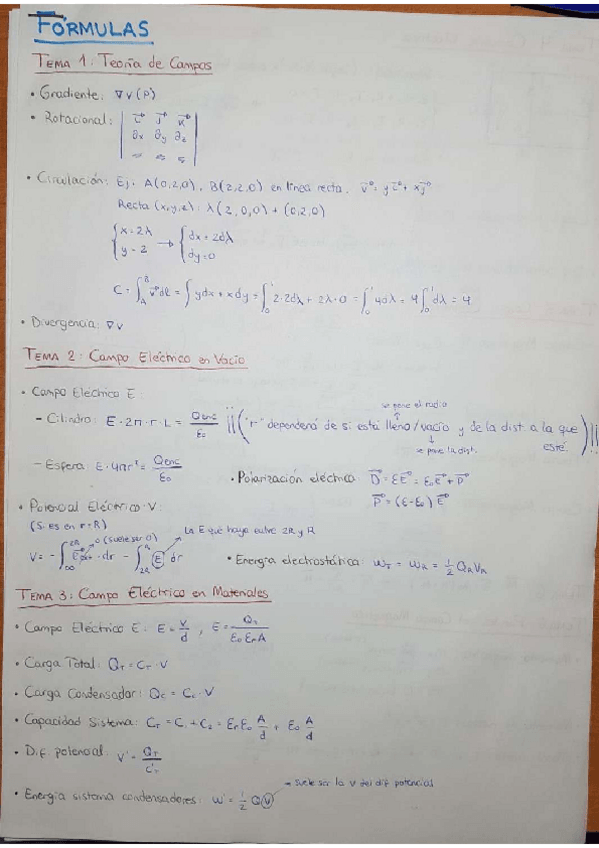 FÓRMULAS
TEMA 1: Teoría de Campos
• Gradiente: ∇V(P)
• Rotacional: | i⃗ j⃗ k⃗ |
| ∂x ∂y ∂z |
• Circulación: Ej. A(0,2,0), B(2,2,0) en línea recta. v⃗ = y i⃗ + x j⃗
Recta (x,y,z): λ(2,0,0) + (0,2,0)
{ x = 2λ → { dx = 2dλ
{ y = 2 { dy = 0
C = ∫_A^B v⃗ dl = ∫ ydx + xdy = ∫_0^1 2·2dλ + 2λ·0 = ∫_0^1 4dλ = 4 ∫_0^1 dλ = 4
• Divergencia: ∇V
TEMA 2: Campo Eléctrico en Vacío
• Campo Eléctrico E:
se pone el radio
– Cilindro: E·2π·r·L = Qenc/ε0 ¡¡("r" dependerá de si está lleno/vacío y de la dist. a la que esté.)!!
se pone la dist.
– Esfera: E·4πr² = Qenc/ε0
• Polarización eléctrica: D⃗ = εE⃗ = ε0E⃗ + P⃗
P⃗ = (ε-ε0)E⃗
• Potencial Eléctrico V:
(Si es en r=R)
0 (suele ser 0)
La E que haya entre 2R y R
V = - ∫_∞^2R E⃗ext·dr - ∫_2R^R E dr
• Energía electrostática: WT = WR = 1/2 QRVR
TEMA 3: Campo Eléctrico en Materiales
• Campo Eléctrico E: E = V/d , E = Q1/ε0εrA
• Carga Total: QT = CT·V
• Carga Condensador: QC = CC·V
• Capacidad Sistema: CT = C1 + C2 = εrε0 A/d + ε0 A/d
• Dif. potencial: V' = QT/C'T
• Energía sistema condensadores: W' = 1/2 Q V → suele ser la V del dif potencial